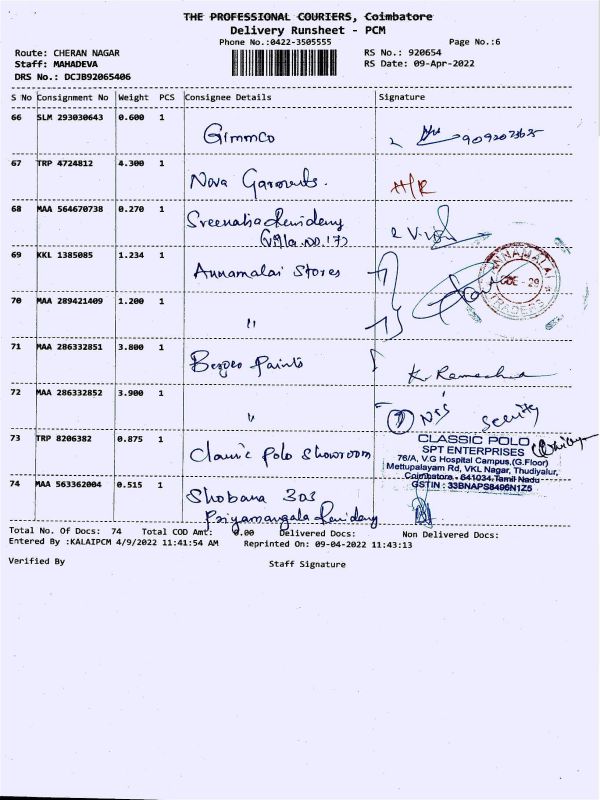 THE PROFESSIONAL COURIERS, Coimbatore
Delivery Runsheet - PCM
Phone No.:0422-3505555 Page No.:6
Route: CHERAN NAGAR RS No.: 920654
Staff: MAHADEVA RS Date: 09-Apr-2022
DRS No.: DCJB92065406
S No Consignment No Weight PCS Consignee Details Signature
66 SLM 293030643 0.600 1
Gimmco
67 TRP 4724812 4.300 1
Nova Garments. H/R
68 MAA 564670738 0.270 1
(Villa.no.17)
69 KKL 1385085 1.234 1
Annamalai Stores
ANNAMALAI
CBE - 29
TRADERS
70 MAA 289421409 1.200 1
"
71 MAA 286332851 3.800 1
Paints
72 MAA 286332852 3.900 1
"
Security
73 TRP 8206382 0.875 1
Classic Polo Showroom
CLASSIC POLO
SPT ENTERPRISES
76/A, V.G Hospital Campus,(G.Floor)
Mettupalayam Rd, VKL Nagar, Thudiyalur,
Coimbatore - 641034.Tamil Nadu
GSTIN : 33BNAPS8496N1Z5
74 MAA 563362004 0.515 1
Shobana 303
Total No. Of Docs: 74 Total COD Amt: 0.00 Delivered Docs: Non Delivered Docs:
Entered By :KALAIPCM 4/9/2022 11:41:54 AM Reprinted On: 09-04-2022 11:43:13
Verified By Staff Signature